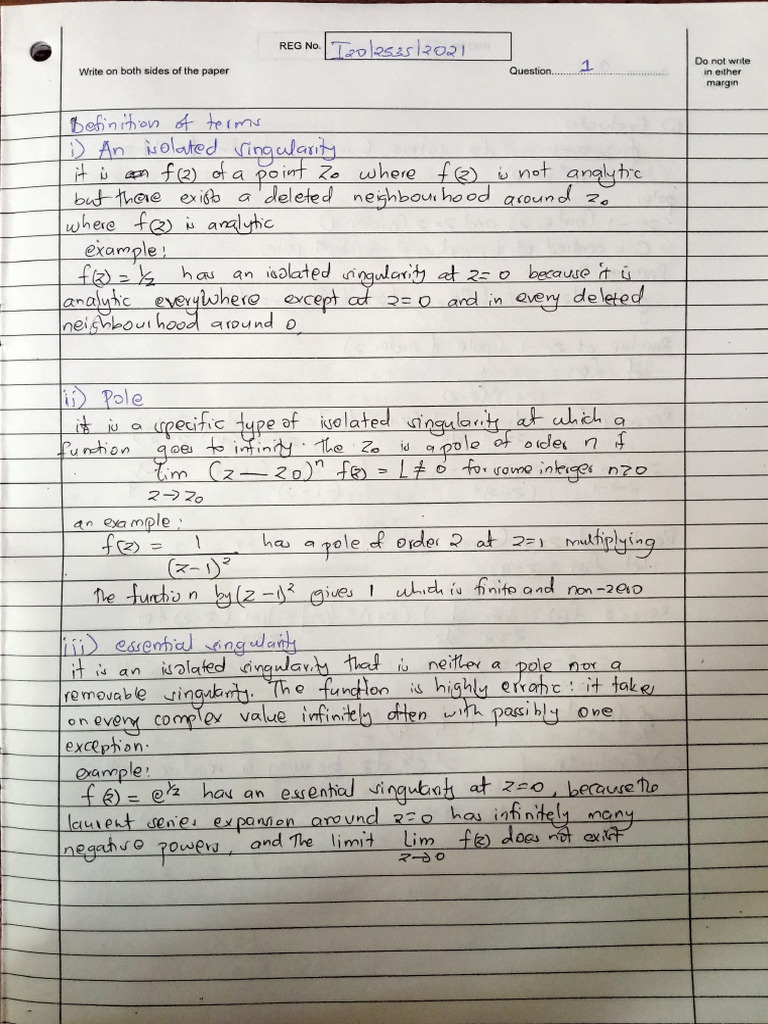 REG No. I20/2535/2021
Do not write
in either
margin
Write on both sides of the paper
Question............1............
Definition of terms
i) An isolated singularity
it is f(z) of a point Z₀ where f(z) is not analytic
but there exists a deleted neighbourhood around z₀
where f(z) is analytic
example:
f(z) = 1/z has an isolated singularity at z = 0 because it is
analytic everywhere except at z=0 and in every deleted
neighbourhood around 0.
ii) Pole
it is a specific type of isolated singularity at which a
function goes to infinity. The Z₀ is a pole of order n if
lim (z — z0)ⁿ f(z) = L ≠ 0 for some interger n>0
z→z₀
an example:
f(z) = 1 has a pole of order 2 at z=1 multiplying
(z-1)²
The function by (z-1)² gives 1 which is finite and non-zero
iii) essential singularity
it is an isolated singularity that is neither a pole nor a
removable singularity. The function is highly erratic: it take
on every complex value infinitely often with possibly one
exception.
example:
f(z) = e^1/z has an essential singularity at z=0, because the
laurent series expansion around z=0 has infinitely many
negative powers, and the limit lim f(z) does not exist
z→0